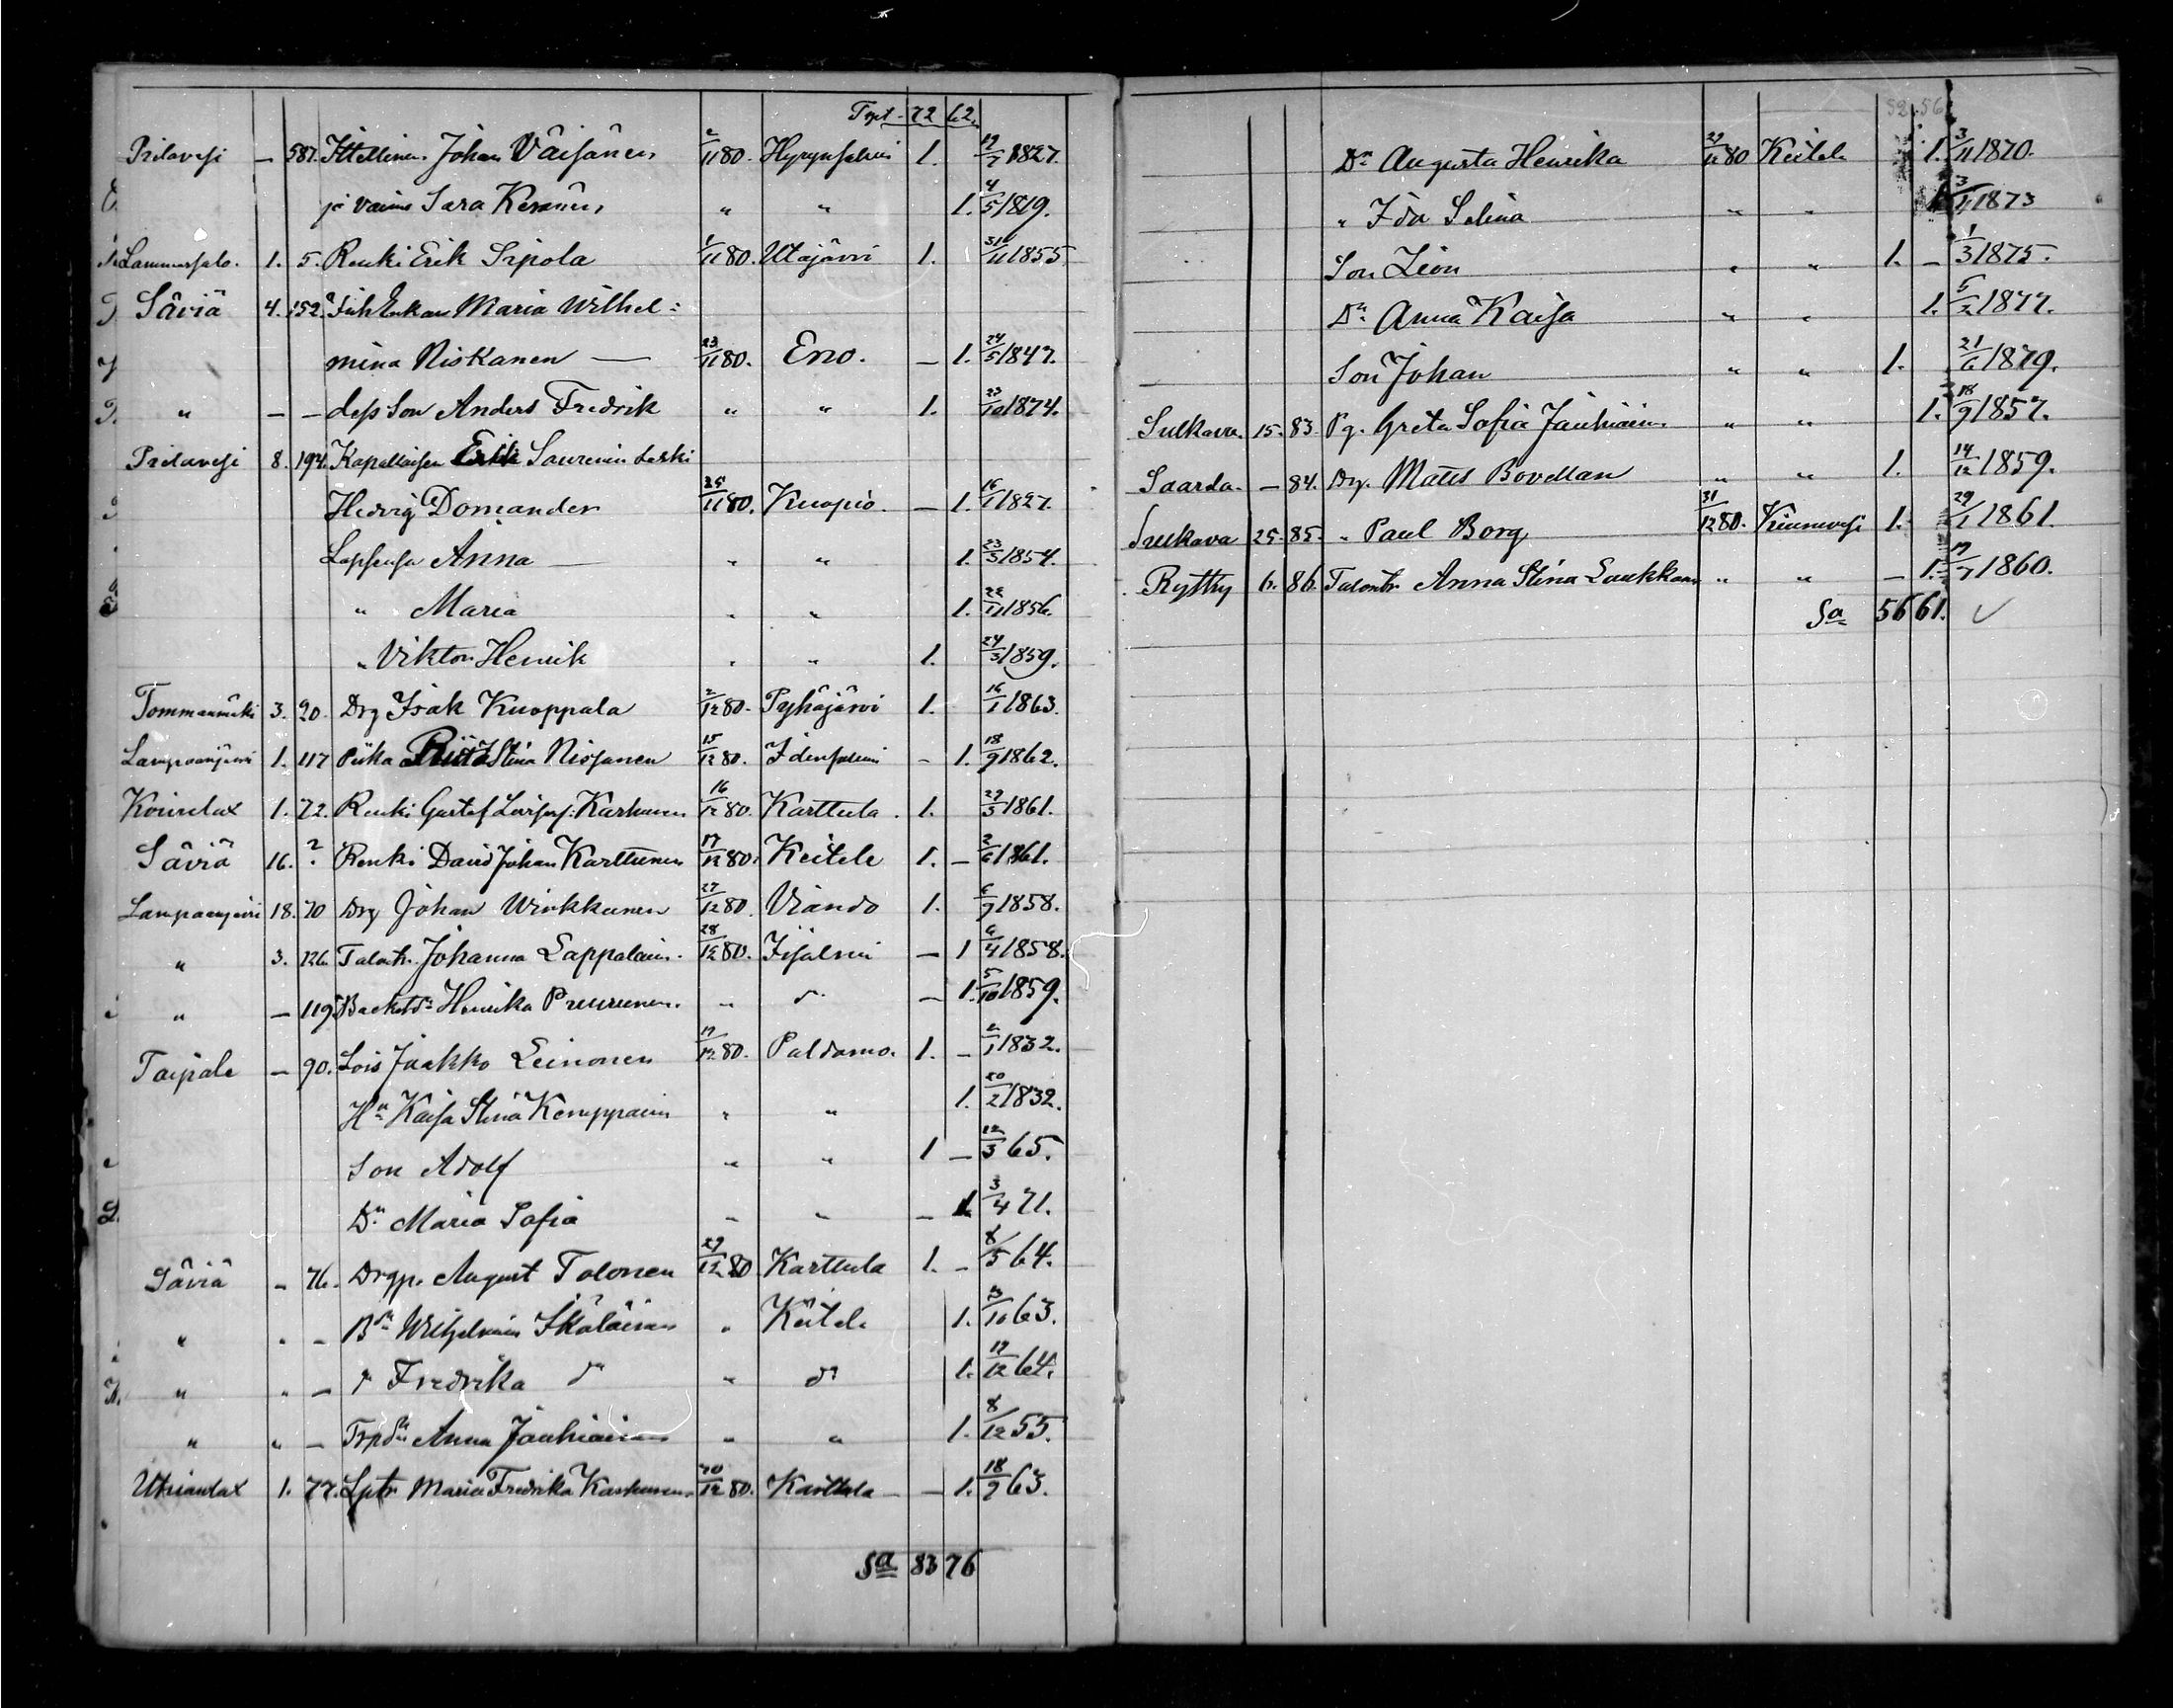 Trpt. 72 62.
Pielavesi — 587. Ittellinen Johan Väisänen 2/11 80. Hyrynsalmi 1. 19/7 1827.
ja vaimo Sara Keränen " " 1. 4/5 1819.
Lammassalo. 1. 5. Renki Erik Sipola 1/11 80. Utajärvi 1. 31/11 1855
Säviä 4. 152. Enkan Maria Wilhel:
mina Niskanen — 23/11 80. Eno. — 1. 24/5 1847.
" — — dess Son Anders Fredrik " " 1. 23/10 1874.
Pielavesi 8. 194. Kapallaisen Erik Laurenin Leski
Hedvig Domander 25/11 80. Kuopio. — 1. 16/1 1827.
Lapsensa Anna — " " 1. 23/3 1854.
" Maria " " 1. 22/11 1856.
" Viktor Henrik " " 1. 24/3 1859.
Tommanmäki 3. 20. Drg Isak Knoppala 2/12 80. Pyhäjärvi 1. 16/1 1863.
Lampaanjärvi 1. 117 Piika Riita Stina Nissinen 15/12 80. Idensalmi — 1. 18/9 1862.
Koivulax 1. 72. Renki Gustaf Karhunen 16/12 80. Karttula. 1. 29/3 1861.
Säviä 16. ? Renki David Johan Karttunen 17/12 80. Keitele 1. — 2/6 1861.
Lampaanjärvi 18. 70 Drg Johan Winkkunen 27/12 80. Viando 1. 6/9 1858.
" 3. 126. Talontr. Johanna Lappalain. 28/12 80. Iisalmi — 1 6/4 1858.
" — 119. Backstdr Henrika Pruurunen. " do — 1. 5/10 1859.
Taipale — 90. Lois Jaakko Leinonen 17/12 80. Paldamo. 1. — 2/1 1832.
Hu Kaisa Stina Kemppainen " " 1. 20/2 1832.
Son Adolf " " 1 — 12/3 65.
Dr Maria Sofia " " — 1. 3/4 71.
Säviä — 76. Drgp. August Tolonen 29/12 80 Karttula 1. — 8/5 64.
" " — Bdr Wilhelmina Ikäläinen " Keitele 1. 3/10 63.
" " — do Fredrika do " do 1. 19/12 64.
" " — Trpdr Anna Jauhiainen " " 1. 8/12 55.
Utrianlax 1. 77. Lptr Maria Fredrika Karhunen 30/12 80. Karttula — — 1. 18/9 63.
Sa 83 76
52. 56
Dr Augusta Henrika 29/12 80 Keitele 1. 3/11 1870.
" Ida Selina " " 1. 3/11 1873
Son Leon " " 1. — 1/3 1875.
Dr Anna Kaisa " " 1. 5/2 1877.
Son Johan " " 1. 21/6 1879.
Sulkava. 15. 83. Pg. Greta Sofia Jauhiain. " " 1. 18/9 1857.
Saarela. — 84. Dr. Mats Bovellan " " 1. 14/12 1859.
Sulkava 25. 85. " Paul Borg 31/12 80. Kiuruvesi 1. 29/1 1861.
Rytky 6. 86. Talontr Anna Stina Laukkanen " " — 1. 19/7 1860.
Sa 56 61. ✓